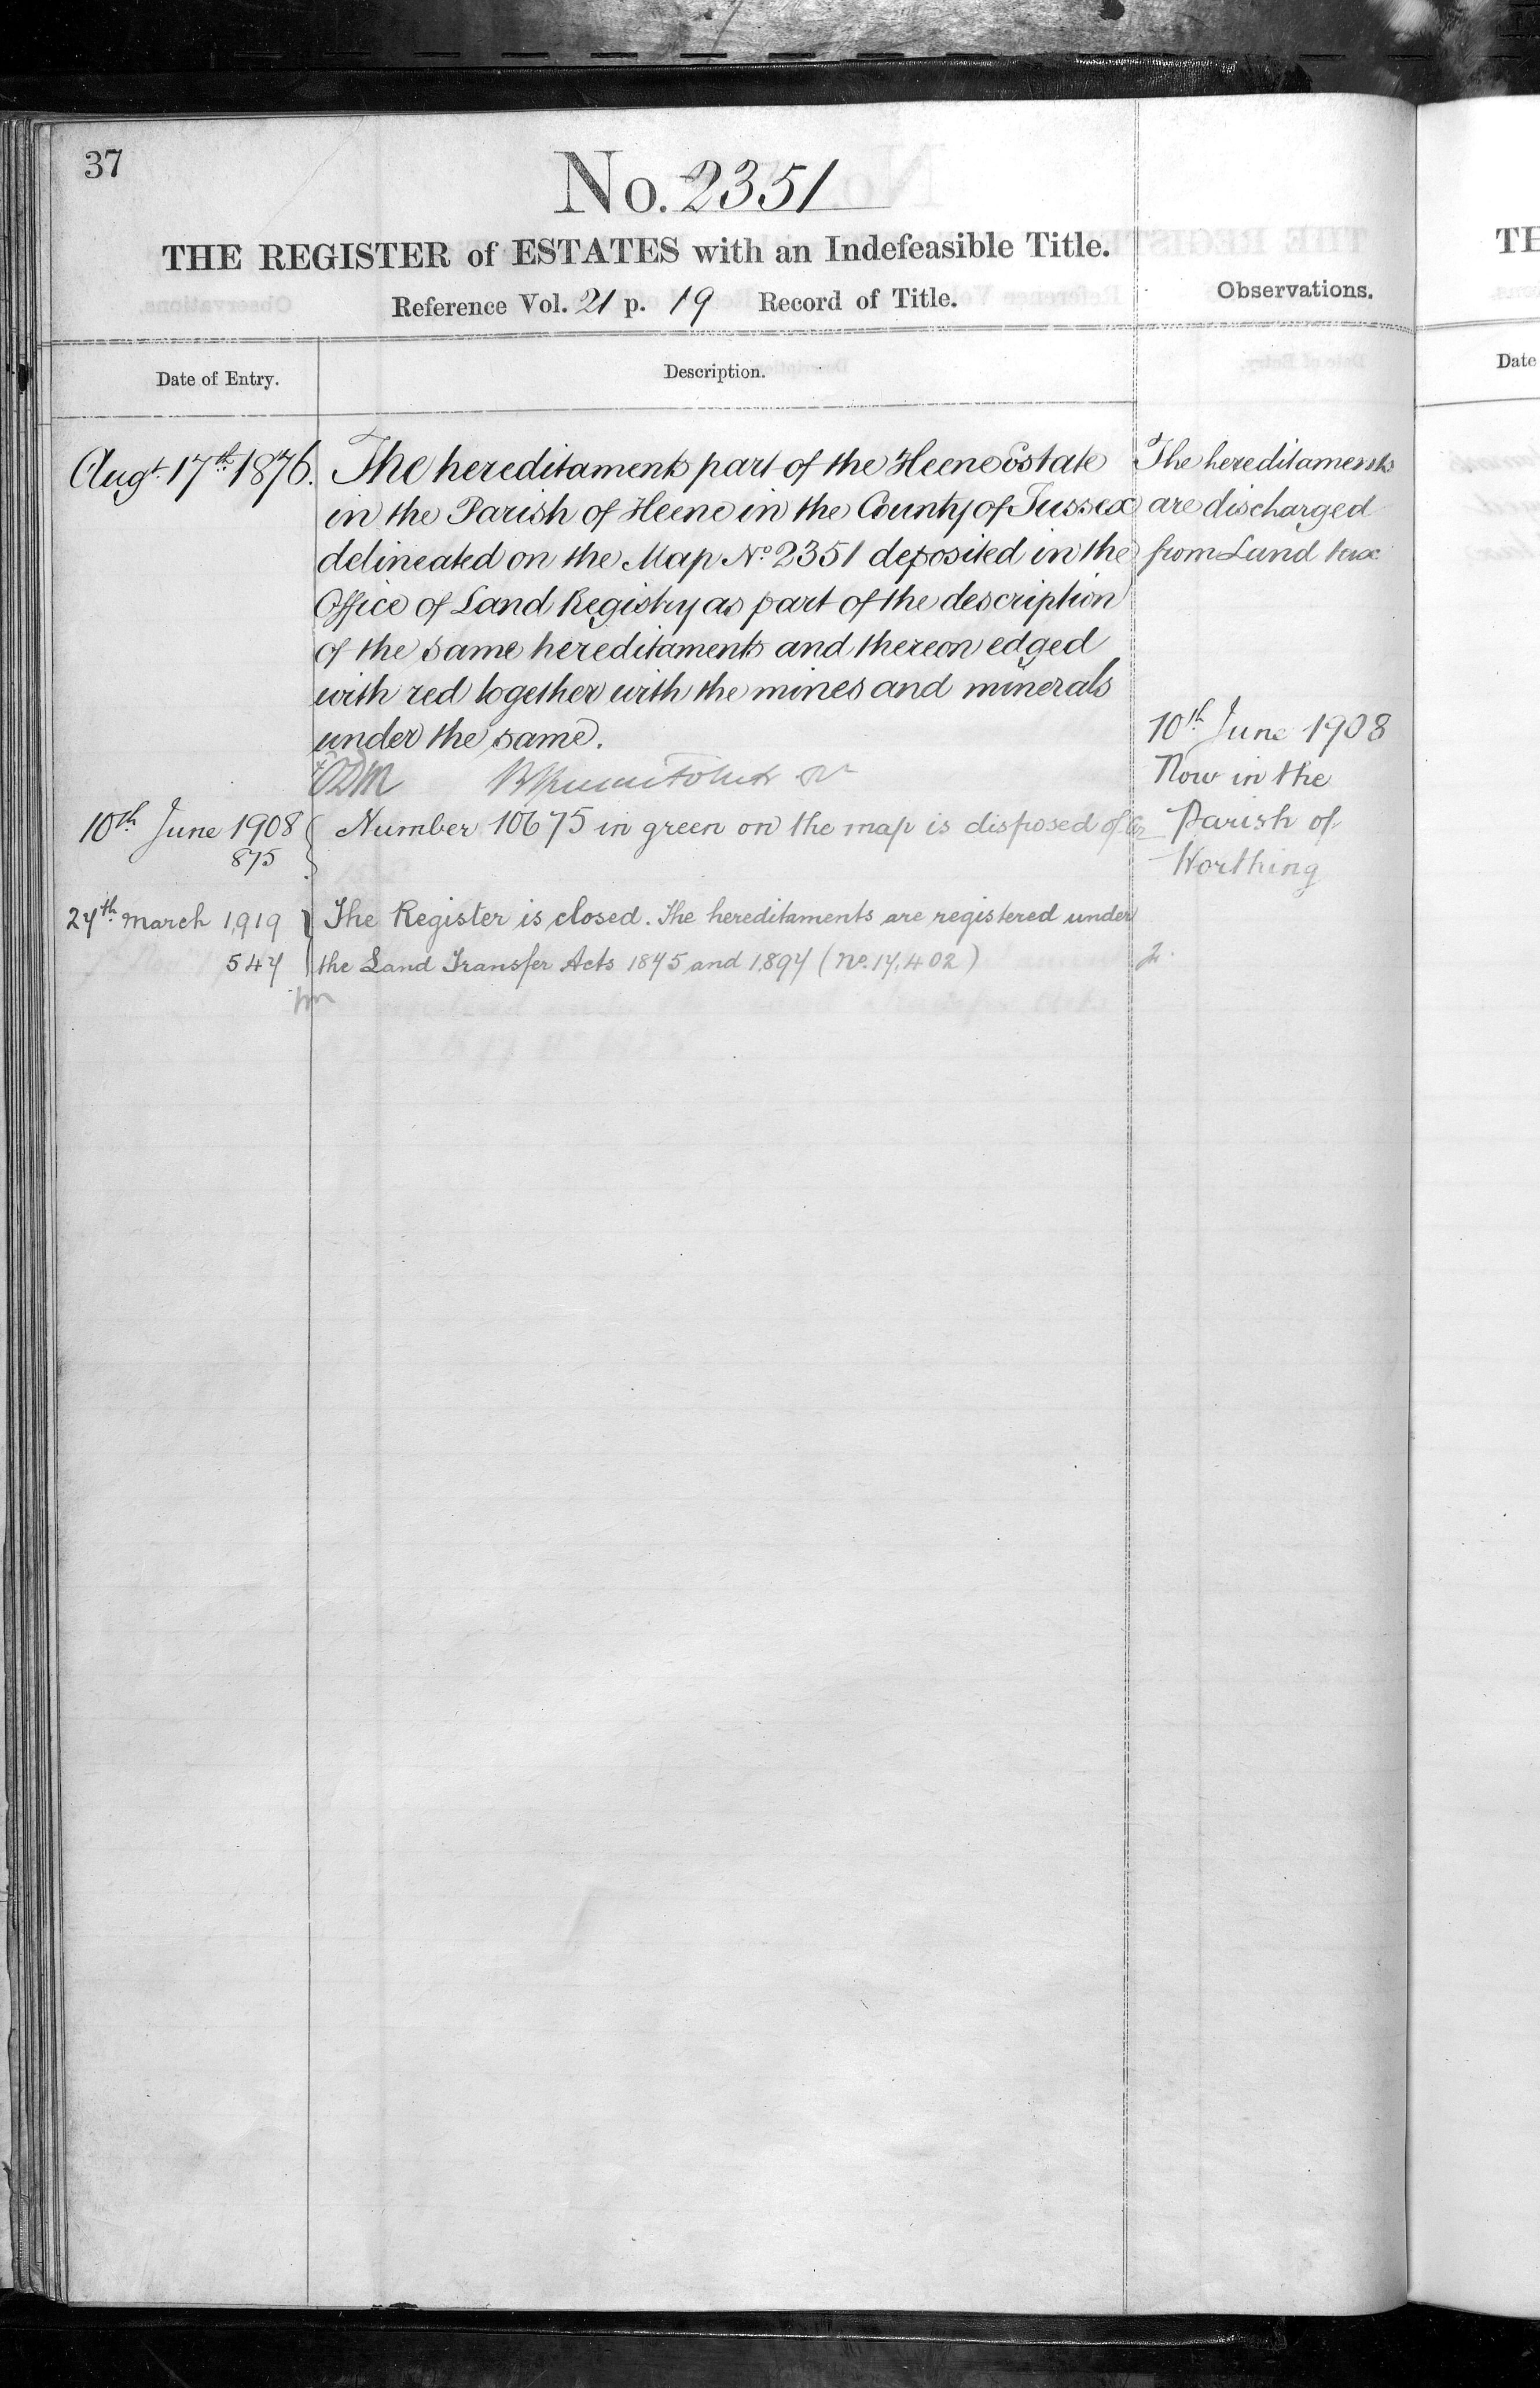 37
No. 2351
THE REGISTER of ESTATES with an Indefeasible Title.
Reference Vol. 21 p. 19 Record of Title.
Observations.
Date of Entry.
Description.
Augt. 17th. 1876.
The hereditaments part of the Heene Estate
in the Parish of Heene in the County of Sussex
delineated on the Map No. 2351 deposited in the
Office of Land Registry as part of the description
of the same hereditaments and thereon edged
with red together with the mines and minerals
under the same.
The hereditaments
are discharged
from Land tax
10th June 1908
Now in the
Parish of
Worthing
10th June 1908
875
Number 10675 in green on the map is disposed of.
27th March 1919
547
The Register is closed. The hereditaments are registered under
the Land Transfer Acts 1875 and 1897 (No. 17,402)
TH
Date